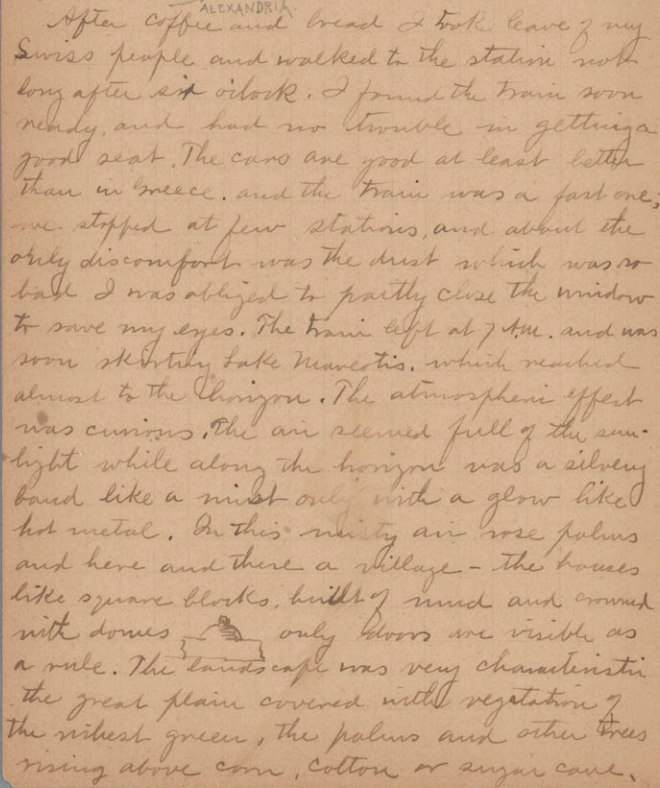 ALEXANDRIA.
After coffee and bread I took leave of my
Swiss people and walked to the station not
long after six o'clock. I found the train soon
ready, and had no trouble in getting a
good seat. The cars are good at least better
than in Greece. and the train was a fast one,
we stopped at few stations, and about the
only discomfort was the dust which was so
bad I was obliged to partly close the window
to save my eyes. The train left at 7 A.M. and was
soon skirting Lake Mareotis. which reached
almost to the horizon. The atmospheric effect
was curious. The air seemed full of the sun-
light while along the horizon was a silvery
band like a mist only with a glow like
hot metal. In this misty air rose palms
and here and there a village - the houses
like square blocks, built of mud and crowned
with domes only doors are visible as
a rule. The landscape was very characteristic
the great plain covered with vegetation of
the richest green, the palms and other trees
rising above corn, cotton or sugar cane.